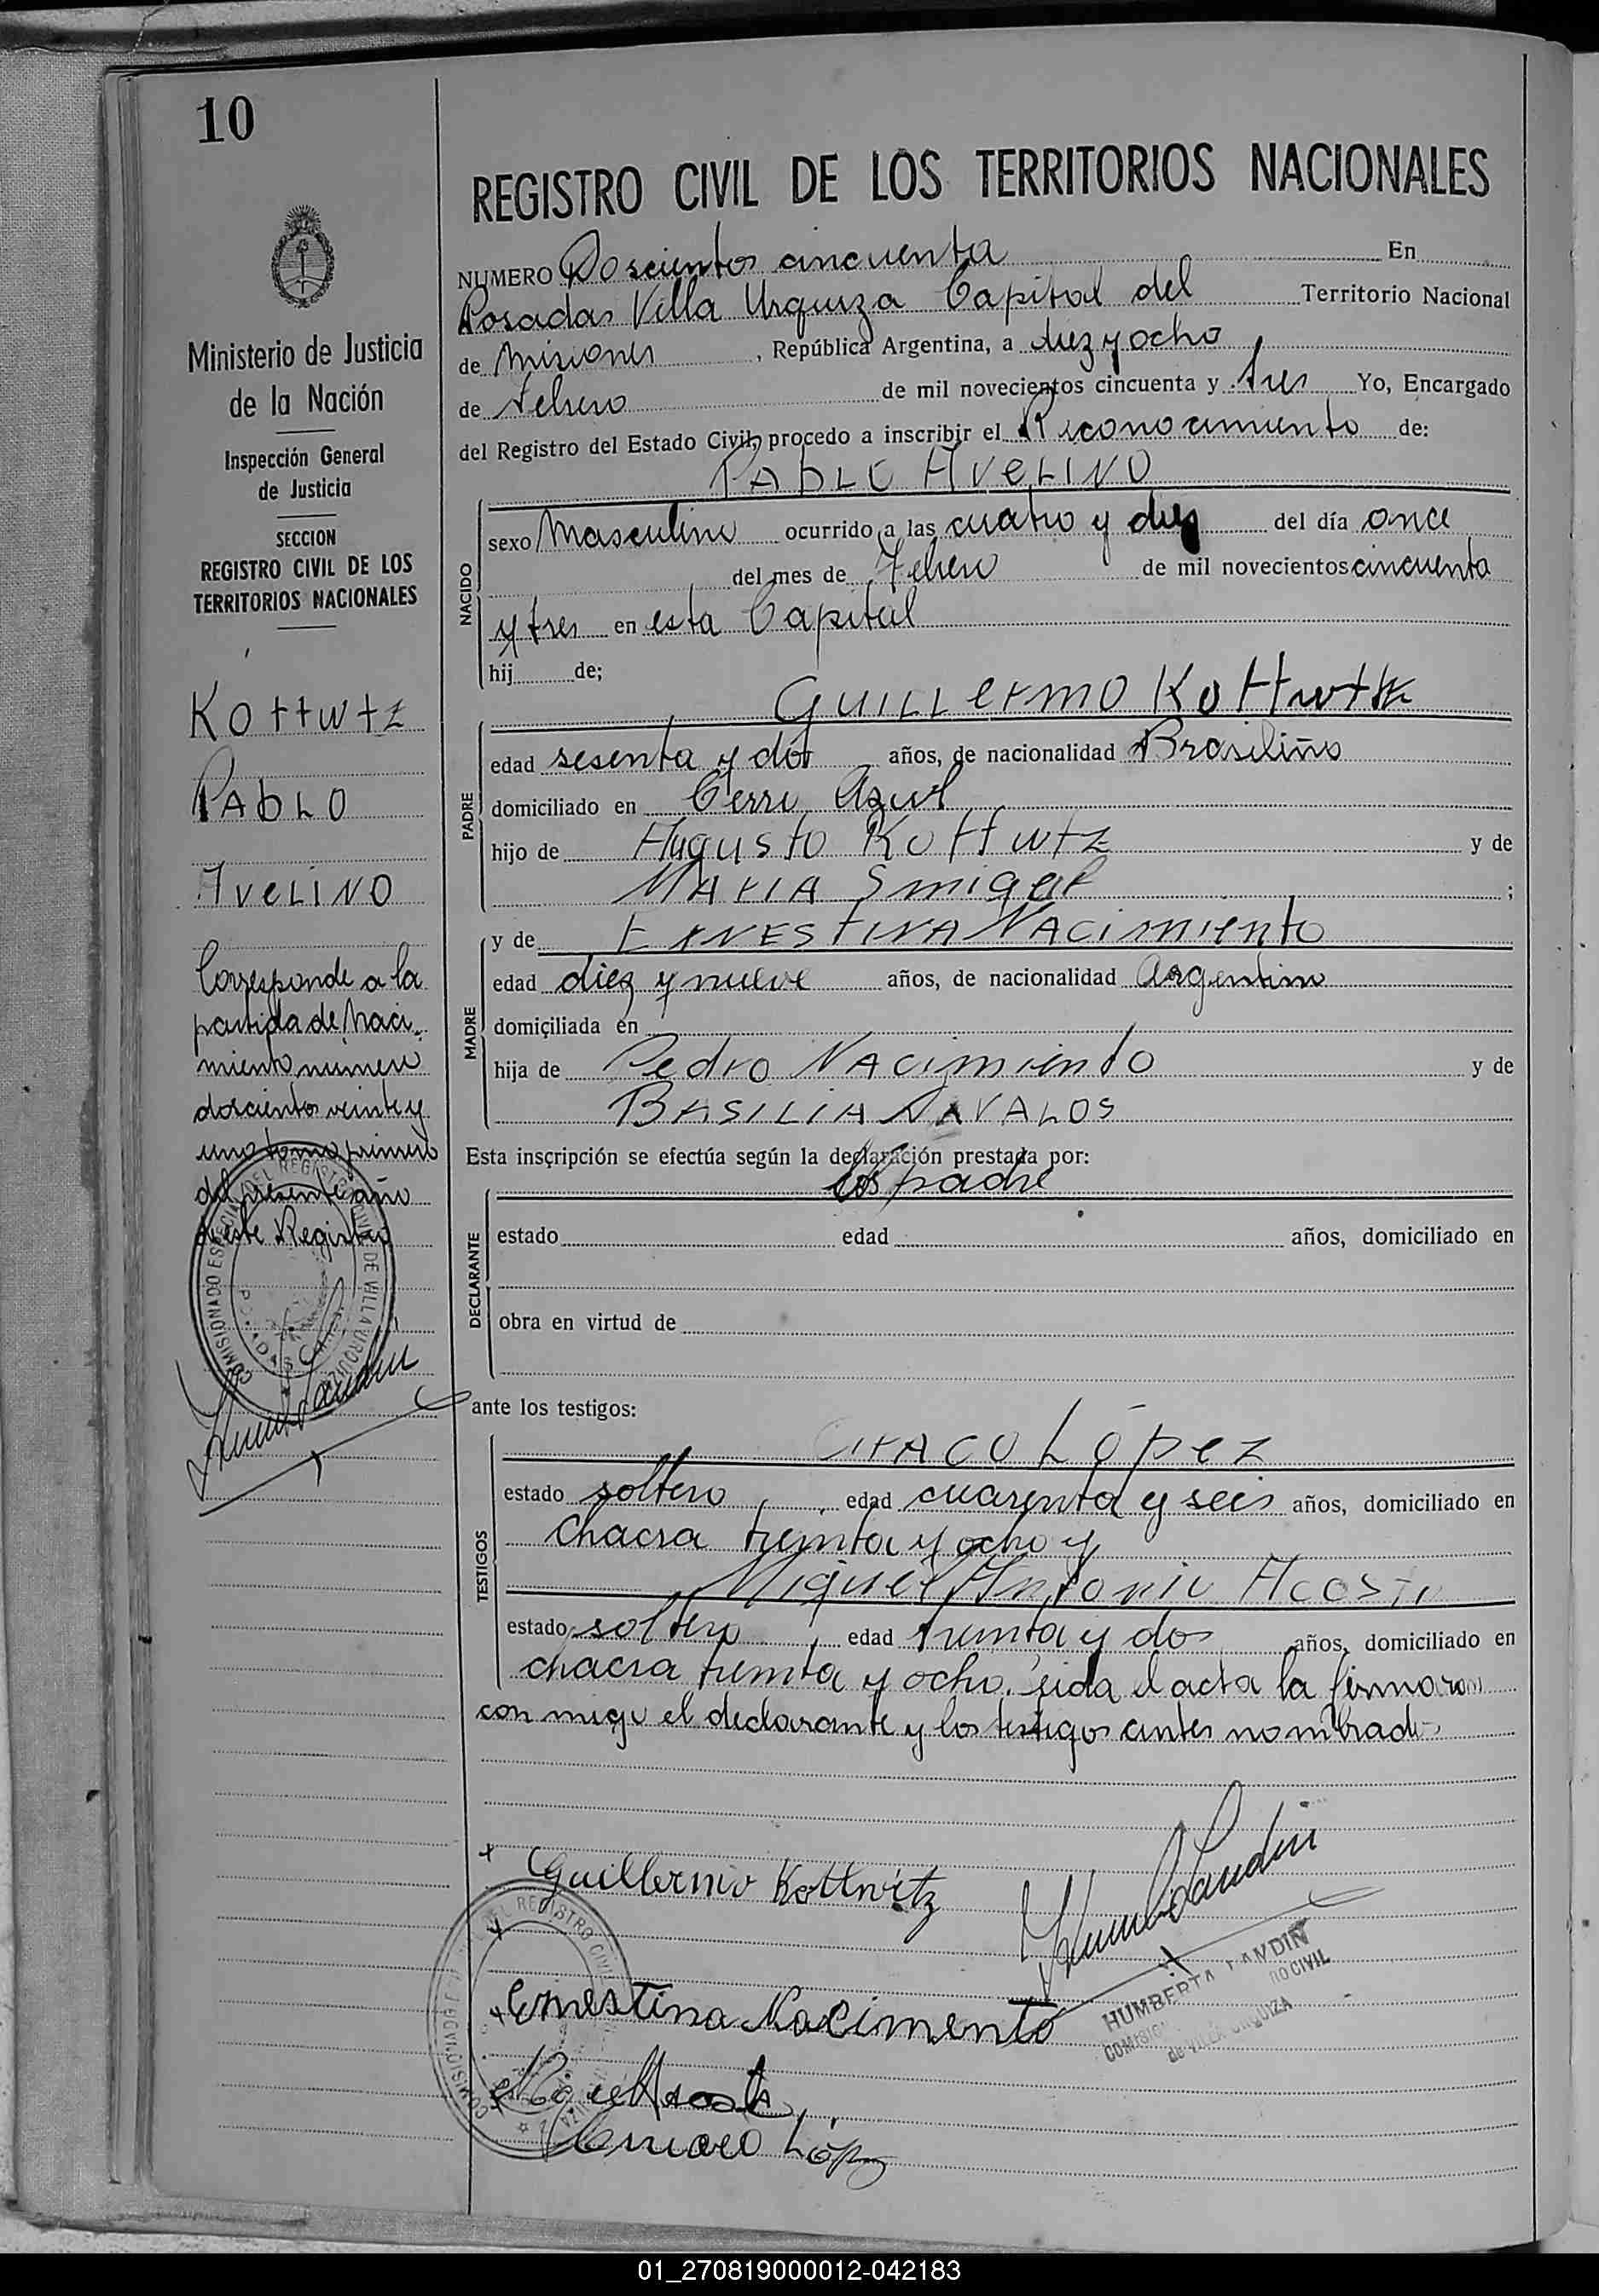 10
REGISTRO CIVIL DE LOS TERRITORIOS NACIONALES
Ministerio de Justicia
de la Nación
Inspección General
de Justicia
SECCION
REGISTRO CIVIL DE LOS
TERRITORIOS NACIONALES
Kottwtz
Pablo
Avelino
Corresponde a la
partida de Naci-
miento numero
doscientos veinte y
uno tomo primero
del presente año
de este Registro
NUMERO Doscientos cincuenta En
Posadas Villa Urquiza Capital del Territorio Nacional
de Misiones, República Argentina, a diez y ocho
de Febrero de mil novecientos cincuenta y tres Yo, Encargado
del Registro del Estado Civil, procedo a inscribir el Reconocimiento de:
Pablo Avelino
NACIDO
sexo Masculino ocurrido a las cuatro y diez del día once
del mes de Febrero de mil novecientos cincuenta
y tres en esta Capital
hij de;
Guillermo Kottwtz
PADRE
edad sesenta y dos años, de nacionalidad Brasiliño
domiciliado en Cerro Azul
hijo de Augusto Kottwtz y de
Maria ;
y de Ernestina Nacimiento
MADRE
edad diez y nueve años, de nacionalidad Argentina
domiciliada en
hija de Pedro Nacimiento y de
Basilia Navalos
Esta inscripción se efectúa según la declaración prestada por:
los padre
DECLARANTE
estado edad años, domiciliado en
obra en virtud de
ante los testigos:
Ciraco López
TESTIGOS
estado soltero, edad cuarenta y seis años, domiciliado en
chacra treinta y ocho y
Miguel Antonio Acosta
estado soltero, edad treinta y dos años, domiciliado en
chacra treinta y ocho. Leida el acta la firmaron
con migo el declarante y los testigos antes nombrados
Guillermo Kottwitz
Ernestina Nacimento
HUMBERTA LANDIN
de VILLA URQUIZA
López
01_270819000012-042183